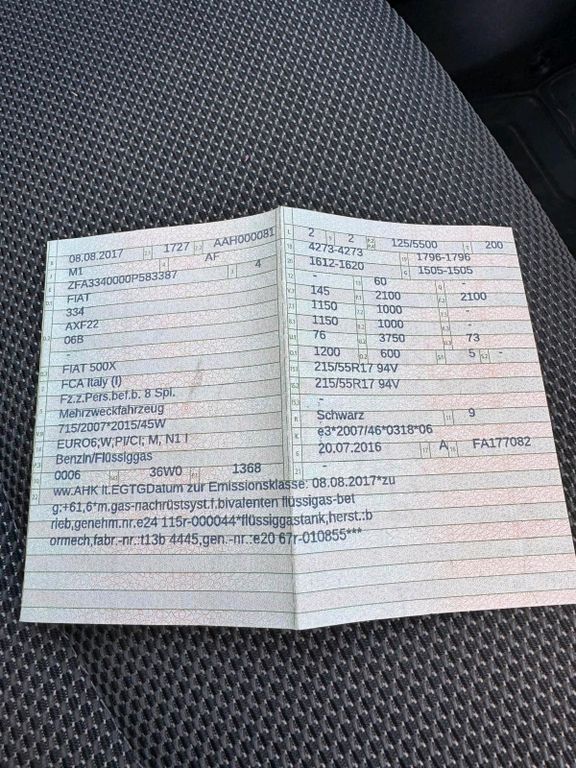 08.08.2017 1727 AAH000081
M1 AF
ZFA3340000P583387 4
FIAT
334
AXF22
06B
-
FIAT 500X
FCA Italy (I)
Fz.z.Pers.bef.b. 8 Spl.
Mehrzweckfahrzeug
715/2007*2015/45W
EURO6;W,PI/CI; M, N1 I
Benzin/Flüssiggas
0006 36W0 1368
2 2 125/5500 200
4273-4273 1796-1796
1612-1620 1505-1505
- 60 -
145 2100 2100
1150 1000 -
1150 1000 -
76 3750 73
1200 600 5 -
215/55R17 94V
215/55R17 94V
-
Schwarz 9
e3*2007/46*0318*06
20.07.2016 A FA177082
-
ww.AHK lt.EGTGDatum zur Emissionsklasse: 08.08.2017*zu
g:+61,6*m.gas-nachrüstsyst.f.bivalenten flüssigas-bet
rieb,genehm.nr.e24 115r-000044*flüssiggastank,herst.:b
ormech,fabr.-nr.:t13b 4445,gen.-nr.:e20 67r-010855***